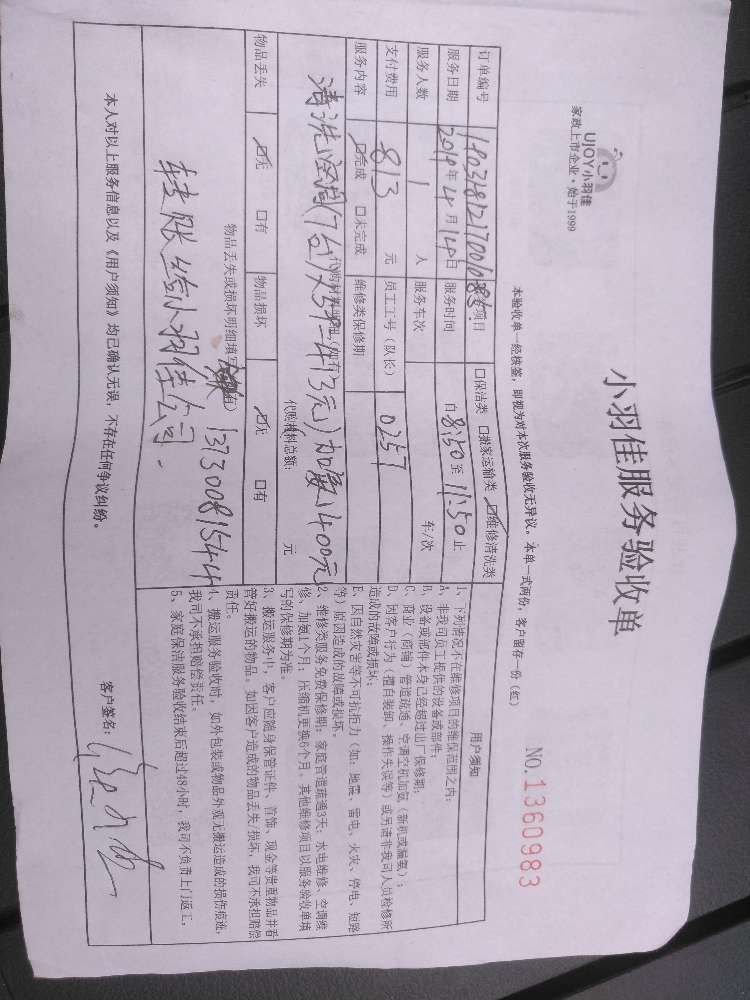 UJOY小羽佳
家政上市企业·始于1999
小羽佳服务验收单
NO.1360983
本验收单一经核签，即视为对本次服务验收无异议。本单一式两份，客户留存一份（红）
订单编号 项目 口保洁类 口搬家运输类 ☑维修清洗类
服务日期 2019年4月14日 服务时间 自8:50至11:50止
服务人数 1 人 服务车次 车/次
支付费用 813 元 员工工号（队长） 0257
服务内容 ☑完成 口未完成 维修类保修期
清洗空调(7台)×59=413元)加氨)400元
代购材料总额： 元
物品丢失 ☑无 口有 物品损坏 ☑无 口有
物品丢失或损坏明细填写
13730081544
转账给小羽佳公司.
用户须知
1、下列情况不在维修项目的维保范围之内：
A、非我司员工提供的设备或部件；
B、设备或部件本身已经超过出厂保修期；
C、商业（商铺）管道疏通、空调空机加氨（新机或漏氨）；
D、因客户行为（擅自装卸、操作失误等）或另请非我司人员检修所
造成的故障或损坏；
E、因自然灾害等不可抗拒力（如：地震、雷电、火灾、停电、短路
等）原因造成的故障或损坏。
2、维修类服务免费保修期：家庭管道疏通3天；水电维修、空调维
修、加氨1个月；压缩机更换6个月。其他维修项目以服务验收单填
写的保修期为准。
3、搬运服务中，客户应随身保管证件、首饰、现金等贵重物品并看
管好搬运的物品。如因客户造成的物品丢失/损坏，我司不承担赔偿
责任。
4、搬运服务验收时，如外包装或物品外观无搬运造成的损伤痕迹，
我司不承担赔偿责任。
5、家庭保洁服务验收结束后超过48小时，我司不负责上门返工。
本人对以上服务信息以及《用户须知》均已确认无误，不存在任何争议纠纷。
客户签名：